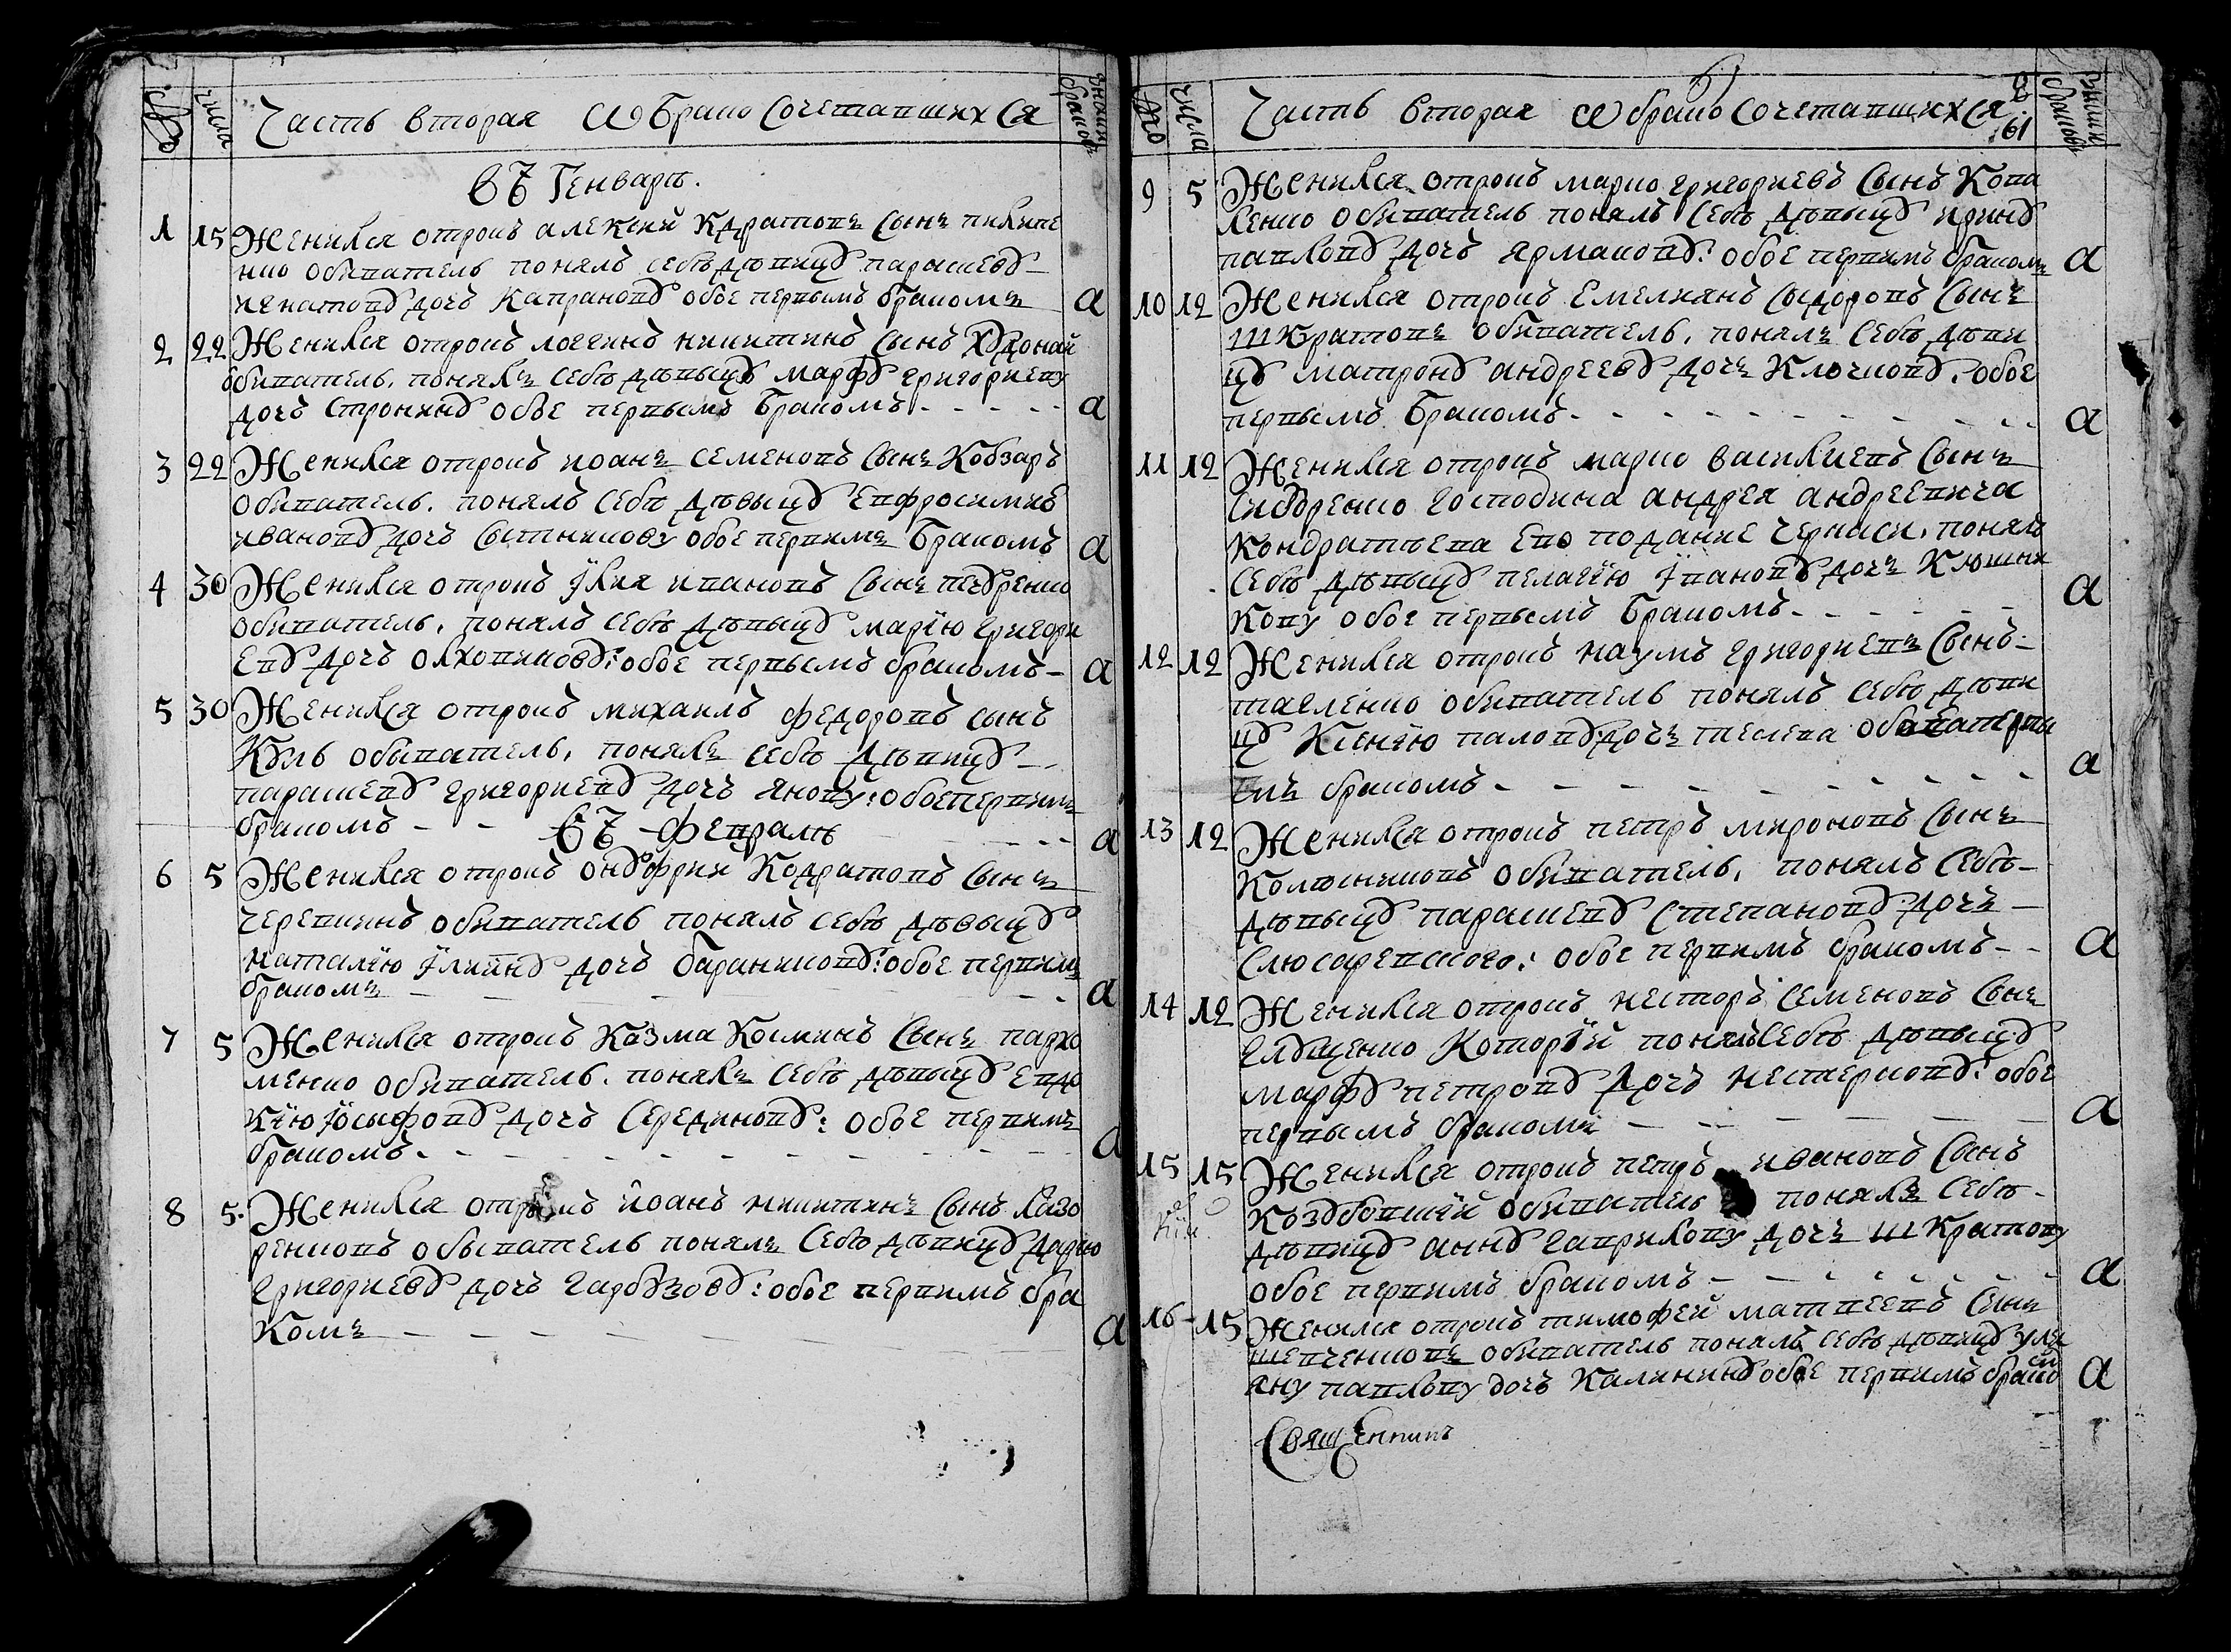 числа Часть вторая Ѡ Брако Сочетавшихся
въ Генваръ.
1 15 Женился отрокъ алекѣй Кдратовъ Сынъ пилипе
нко обиватель понялъ себѣ дѣвицꙋ парасѣевꙋ
игнатовꙋ дочъ Капрановꙋ обое первымъ бракомъ а
2 22 Женился отрокъ логгинъ никитинъ Сынъ Хꙋдокай
обиватель. понялъ себѣ дѣвыцꙋ марфꙋ григориеву
дочъ Стронинꙋ обое первымъ бракомъ - - - - - а
3 22 Женился отрокъ иоанъ семеновъ Сынъ Кобзаръ
обиватель. понялъ себѣ дѣвыцꙋ Евфросимию
ивановꙋ дочъ Сытникову обое первимъ Бракомъ а
4 30 Женился отрокъ Їлия ивановъ Сынъ
обиватель. понялъ себѣ дѣвыцꙋ марїю григори
Евꙋ дочъ олховиковꙋ: обое первымъ бракомъ - а
5 30 Женился отрокъ михаилъ федоровъ сынъ
Кꙋлъ обыватель. понялъ себѣ дѣвицꙋ -
парасиевꙋ григориевꙋ дочъ Янову: обое первимъ
бракомъ - - въ - февралѣ - - - а
6 5 Женился отрокъ онꙋфрии Кодратовъ Сынъ
черевкинъ обиватель понялъ себѣ дѣвыцꙋ
наталїю Їлиинꙋ дочъ бараниковꙋ: обое первимъ
бракомъ - - - - а
7 5 Женился отрокъ Козма Косминъ Сынъ пархо
менко обиватель. понялъ себѣ дѣвыцꙋ Евдо
кїю Їосыфовꙋ дочъ Серединовꙋ: обое первимъ
бракомъ - - - - - - - - а
8 5. Женился отрокъ їоанъ никитинъ Сынъ лазо
ренковъ обыватель понялъ себѣ дѣвицꙋ дарию
григориевꙋ дочъ гарбꙋзовꙋ: обое первимъ бра
комъ - - - - - а
числа Часть вторая Ѡ брако Сочетавшихся
61
9 5 Женился отрокъ марко григориевъ Сынъ Кова
ленко обиватель понялъ себѣ дѣвыцꙋ иринꙋ
павловꙋ дочъ Ярмаковꙋ: обое первимъ бракомъ а
10 12 Женился отрокъ Емелиянъ Сыдоровъ Сынъ
Шкуратовъ обиватель. понялъ себѣ дѣви
цꙋ матронꙋ андреевꙋ дочъ Ключковꙋ. обое
первымъ бракомъ - - - - - - а
11 12 Женился отрокъ марко василиевъ Сынъ
Сидоренко господина андрея андреевича
Кондратьева Его подание черкаси. понялъ
себѣ дѣвыцꙋ пелагѣю Ївановꙋ дочъ Клюшни
кову обое первымъ бракомъ - - - - - а
12 12 Женился отрокъ наумъ григориевъ Сынъ -
обиватель понялъ себѣ дѣви
цꙋ Ксенїю дочъ
бракомъ - - - - - - а
13 12 Женился отрокъ петръ мироновъ Сынъ
Колѣсниковъ обиватель. понялъ себѣ -
дѣвыцꙋ парасиевꙋ степановꙋ дочъ -
Слюсаревского: обое первимъ бракомъ - - а
14 12 Женился отрокъ несторъ семеновъ Сынъ
Елꙋщенко Которїй понялъ себѣ дѣвыцꙋ
марфꙋ петровꙋ дочъ нестерковꙋ: обое
первымъ бракомъ - - - - а
15 15 Женился отрокъ петръ ивановъ Сынъ
Козꙋбовский обиватель понялъ себѣ -
дѣвицꙋ аннꙋ гаврилову дочъ Шкратову
обое первимъ бракомъ - - - - - - а
16 15 Женился отрокъ тимофей матвеевъ Синъ
шевченковъ обиватель понялъ себѣ дѣвицꙋ уля
яну павлову дочъ Калининꙋ обое первимъ брако а
Священникъ